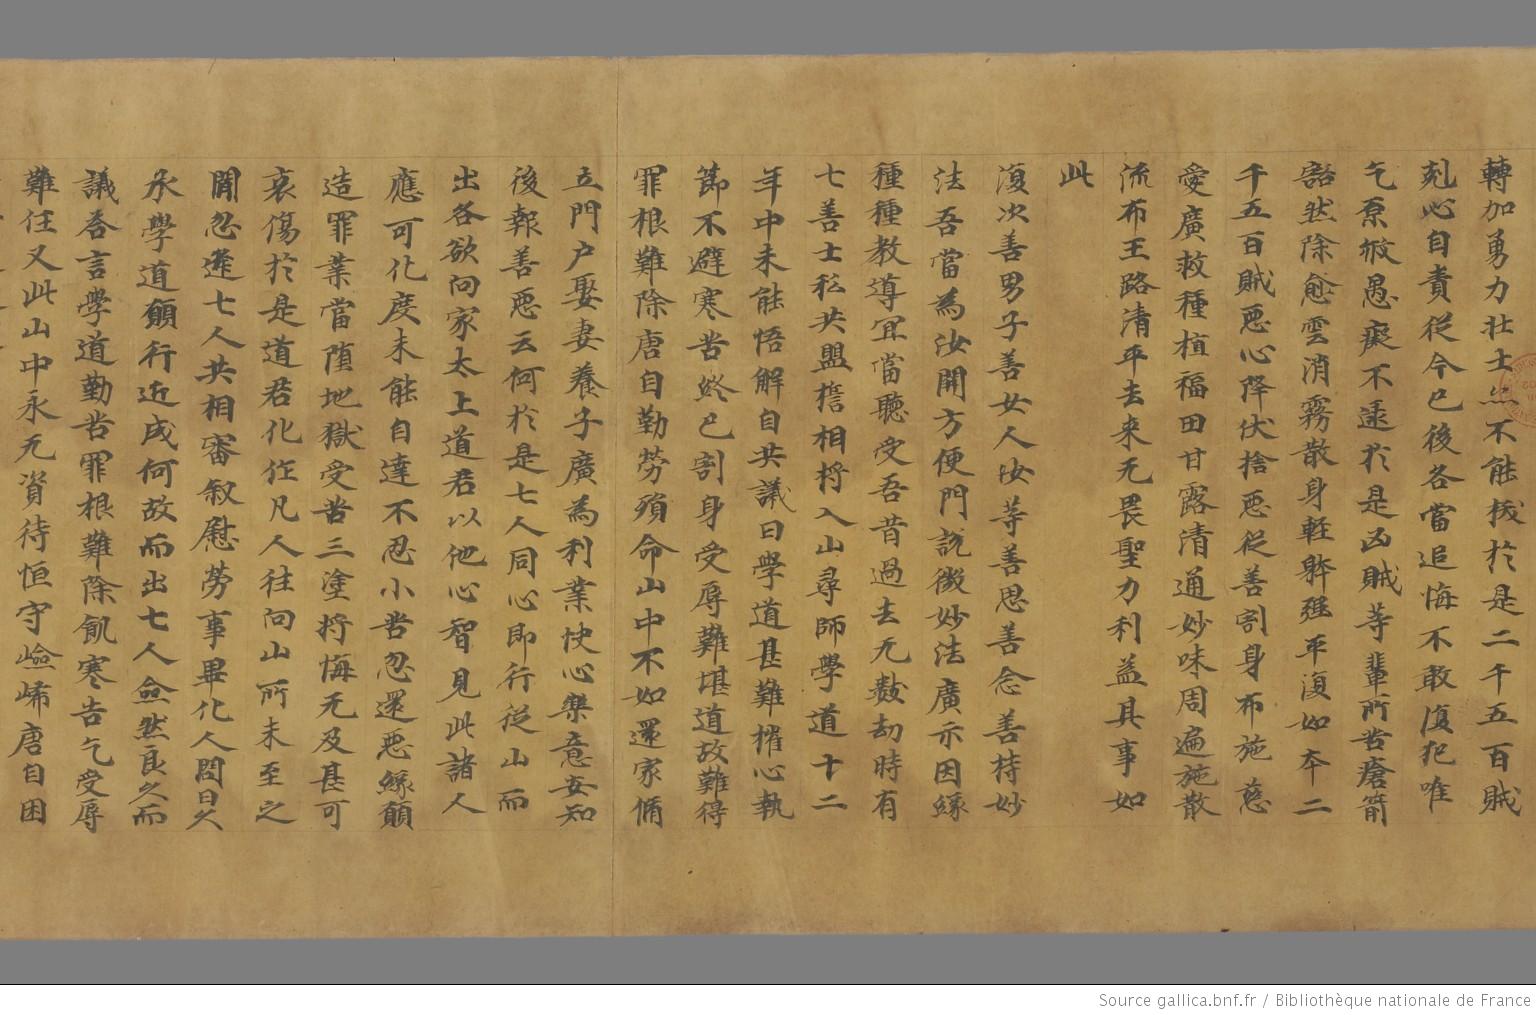 轉加勇力壯士亦不能拔於是二千五百賊
剋心自責從今已後各當追悔不敢復犯唯
乞原放愚癡不逮於是凶賊等輩所苦瘡箭
豁然除愈雲消霧散身輕骵强平復如本二
千五百賊惡心降伏捨惡從善割身布施慈
愛廣救種植福田甘露清通妙味周遍施散
流布王路清平去来无畏聖力利益其事如
此
復次善男子善女人汝等善思善念善持妙
法吾當為汝開方便門説微妙法廣示因緣
種種教導冝當聽受吾昔過去无數劫時有
七善士私共盟擔相將入山尋師學道十二
年中未能悟解自共議曰學道甚難㩁心執
節不避寒苦終已割身受辱難堪道故難得
罪根難除唐自勤勞殞命山中不如還家脩
立門户娶妻養子廣為利業快心樂意安知
後報善惡云何於是七人同心即行從山而
出各欲向家太上道君以他心智見此諸人
應可化度未能自達不忍小苦忽還惡緣願
造罪業當墮地獄受苦三塗將悔无及甚可
哀傷於是道君化作凡人往向山所未至之
間忽逢七人共相審叙慰勞事畢化人問曰久
承學道願行近成何故而出七人僉然良久而
議荅言學道勤苦罪根難除飢寒告乞受辱
難住又此山中永无資待恒守嶮㠻唐自困
Source gallica.bnf.fr / Bibliothèque nationale de France